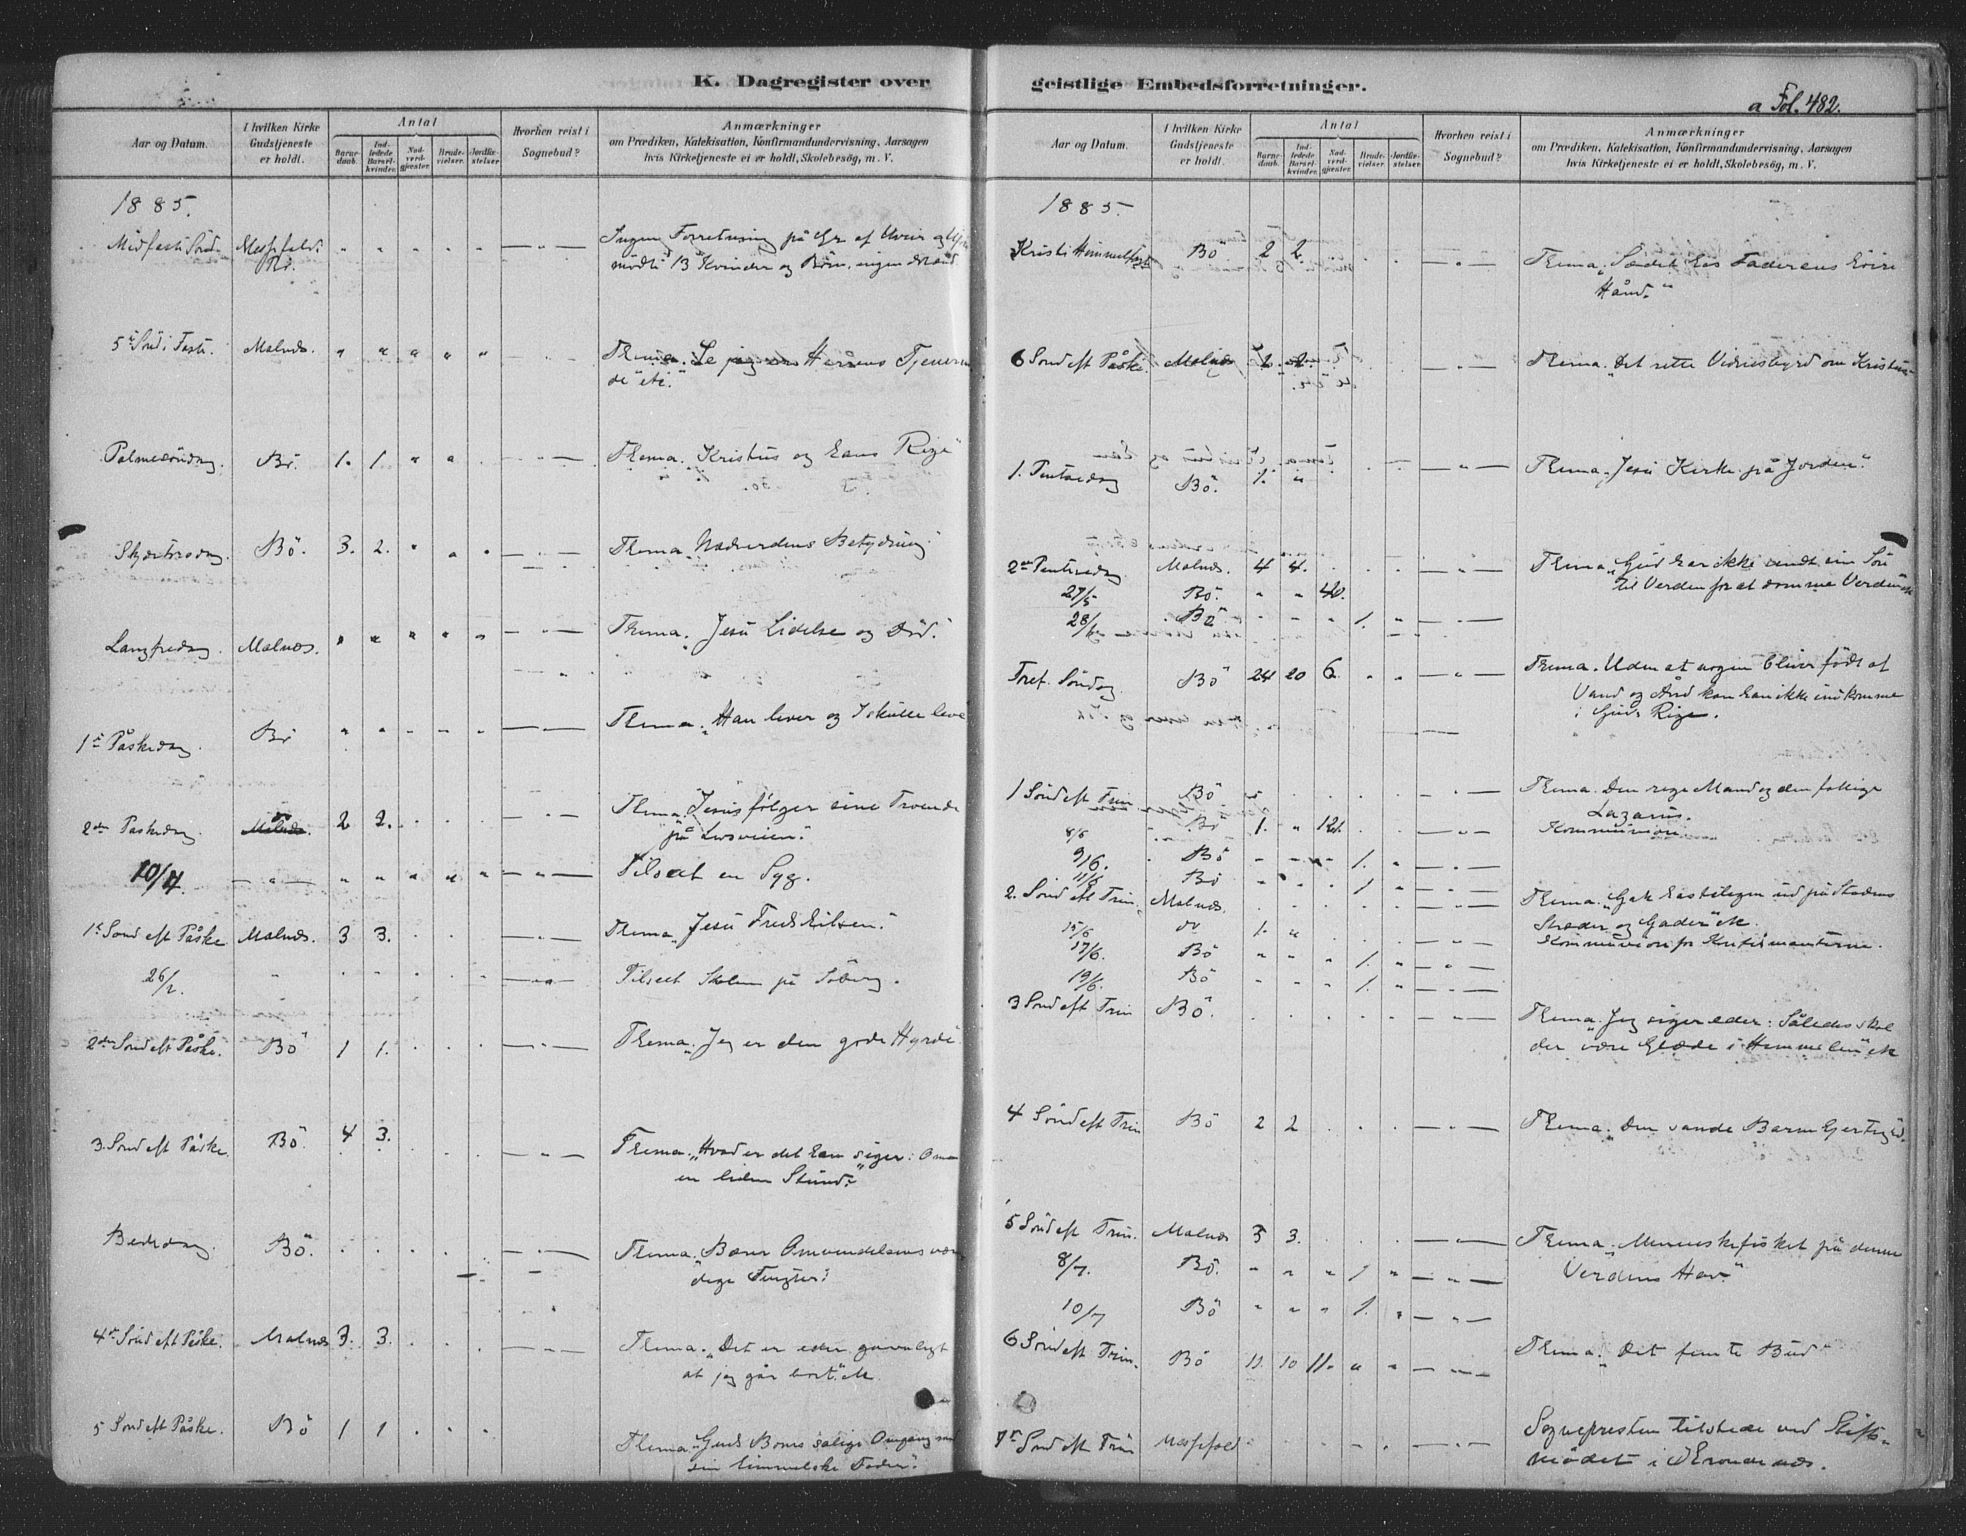 K. Dagregister over
Aar og Datum.
I hvilken Kirke Gudstjeneste er holdt.
Antal
Barnedaab.
Indledede Barselkvinder.
Nadverdgjæster.
Brudevielser.
Jordfæstelser
Hvorhen reist i Sognebud?
Anmærkninger
om Prædiken, Katekisation, Konfirmandundervisning, Aarsagen
hvis Kirketjeneste ei er holdt, Skolebesög, m. V.
1885.
Midfasti Sönd. Messefald. Bö. Ingen Forretning på Gr af Uveir og
mödt 13 Kvinder og Börn, ingen
5te Sönd i Faste. Malnæs. Thema. Se Herrens Tjener
de" etc."
Palmesöndag. Bö. 1. 1 Thema. "Kristus og hans Rige"
Skjærtorsdag. Bö. 3. 2. Thema. "Nadverdens Betydning"
Langfredag. Malnæs. Thema. "Jesu Lidelse og Död."
1ste Påskedag. Bö Thema. "Han lever og I skulle leve
2den Paskedag. 2 2. Thema. "Jesus fölger sine Troende
på Livsveien."
10/4. Tilseet en Syg.
1ste Sönd eft Påske Malnæs. 3 3. Thema. "Jesu Fredshilsen."
26/ Tilseet Skolen på Söberg.
2den Sönd eft Påske. Bö 1 1. Thema. "Jeg er den gode Hyrde"
3. Sönd eft Påske. Bö. 4 3. Thema. "Hvad er det han siger: Om
en liden Stund."
Bededag Bö. Thema. "Bærer Omvendelsens vær
dige Frugter."
4de Sönd eft Påske. Malnæs 3. 3. Thema. "Det er eder gavnligt
at jeg går bort" etc.
5 Sönd eft Påske. Bö 1 1 Thema. "Guds Börns salige Omgang med
sin himmelske Fader."
geistlige Embedsforretninger.
a Fol. 482.
Aar og Datum.
I hvilken Kirke Gudstjeneste er holdt.
Antal
Barnedaab.
Indledede Barselkvinder.
Nadverdgjæster.
Brudevielser.
Jordfæstelser.
Hvorhen reist i Sognebud?
Anmærkninger
om Prædiken, Katekisation, Konfirmandundervisning, Aarsagen
hvis Kirketjeneste ei er holdt, Skolebesög, m. V.
1885.
Kristi Himmelfart Bö 2 2. Thema. "Sædet hos Faderens höire
Hånd."
6 Sönd eft Påske. Malnæs 2 2. Thema. "Det rette Vidnesbyrd om Kristus"
1. Pintsedag Bö. 1. Thema. "Jesu Kirke på Jorden."
2den Pintsedag Malnæs. 4 4. Thema. "Gud har ikke sendt sin Sön
til Verden for at dömme Verden" etc
27/5 Bö. 40.
28/5 Bö 1.
Tref. Söndag. Bö 24 20 6. Thema. Uden at nogen bliver födt af
Vand og Ånd kan han ikke indkomme
i Guds Rige.
1 Sönd eft Trin Bö Thema. Den rige Mand og den fattige
Lazarus.
8/6 Bö 1. 121. Kommunion.
9/6. Bö 1.
11/6 Bö 1
2. Sönd eft Trin. Malnæs. Thema. "Gak hastelig ud på Stadens
Stræder og Gader" etc.
15/6 do 1. Kommunion for Konfirmanterne.
17/6. Bö 1.
19/6. Bö 1.
3 Sönd eft Trin Bö. Thema. "Jeg siger eder: Således skal
der være Glæde i Himmelen" etc
4 Sönd eft Trin Bö 2 2 Thema. "Den sande Barmhjertighed.
5 Sönd eft Trin. Malnæs 3 3. Thema. "Menneskefisket på denne
Verdens Hav."
8/7. Bö. 1
10/7 Bö 1.
6 Sönd eft Trin. Bö 11. 10 11. Thema. "Det femte Bud"
7de Sönd eft Trin Messefald Sognepresten tilstede ved Stifts-
mödet i Tromsö.